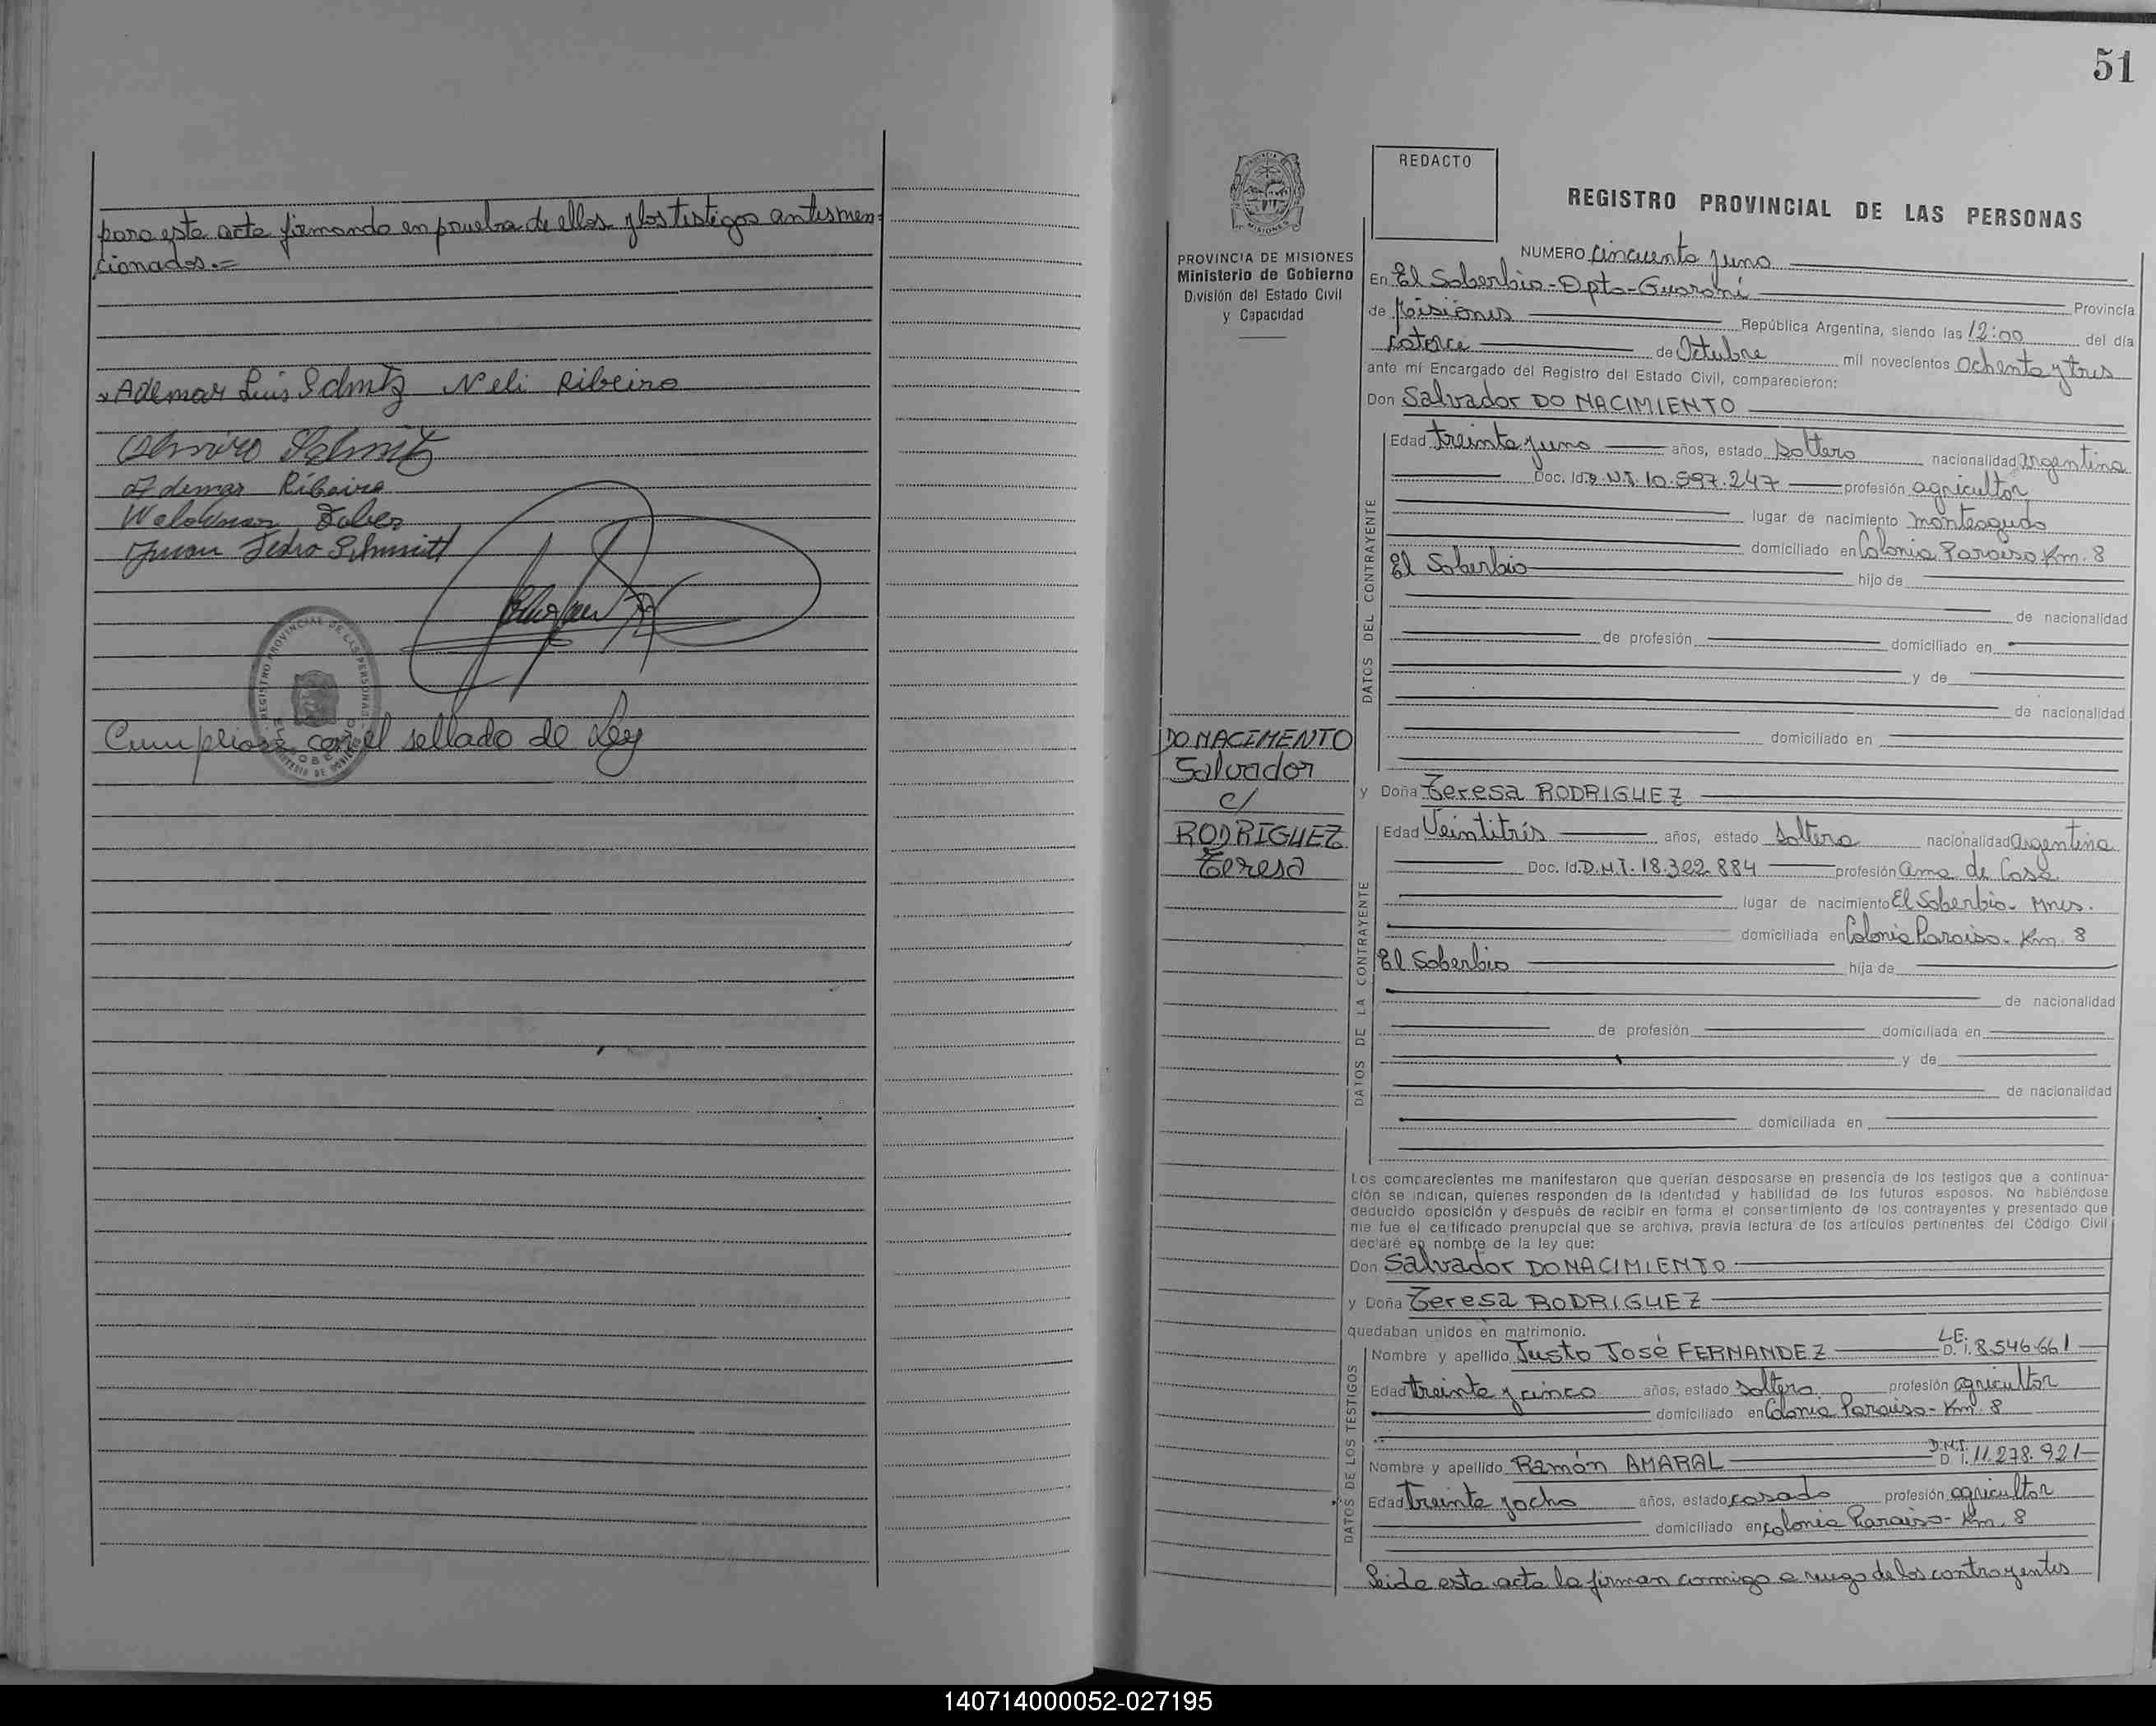 para esta acta firmando en prueba de ellos y los testigos antesmen-
cionados.=
Ademar Luis Schmtz Neli Ribeiro
Schmitz
Ademar Ribeiro
Waldemar
Juan Pedro Schmitt
REGISTRO PROVINCIAL DE LAS PERSONAS
Cumpliose con el sellado de Ley
51
REDACTO
REGISTRO PROVINCIAL DE LAS PERSONAS
MISIONES
PROVINCIA DE MISIONES
Ministerio de Gobierno
División del Estado Civil
y Capacidad
NUMERO cincuenta y uno
En El Soberbio-Dpto-Guaraní Provincia
de Misiones República Argentina, siendo las 12:00 del día
catorce de Octubre mil novecientos Ochenta y tres
ante mí Encargado del Registro del Estado Civil, comparecieron:
Don Salvador DO NACIMIENTO
DATOS DEL CONTRAYENTE
Edad treinta y uno años, estado soltero nacionalidad argentina
Doc. Id. D.N.I. 10.597.247 profesión agricultor
lugar de nacimiento monteagudo
domiciliado en Colonia Paraiso Km. 8
El Soberbio hijo de
de nacionalidad
de profesión domiciliado en
y de
de nacionalidad
domiciliado en
DO NACIMENTO
Salvador
c/
RODRIGUEZ
Teresa
y Doña Teresa RODRIGUEZ
DATOS DE LA CONTRAYENTE
Edad Veintitrés años, estado soltera nacionalidad argentina
Doc. Id. D.N.I. 18.322.884 profesión ama de Casa
lugar de nacimiento El Soberbio- Mnes.
domiciliada en Colonia Paraiso- Km. 8
El Soberbio hija de
de nacionalidad
de profesión domiciliada en
y de
de nacionalidad
domiciliada en
Los comparecientes me manifestaron que querían desposarse en presencia de los testigos que a continua-
ción se indican, quienes responden de la identidad y habilidad de los futuros esposos. No habiéndose
deducido oposición y después de recibir en forma el consentimiento de los contrayentes y presentado que
me fue el certificado prenupcial que se archiva, previa lectura de los artículos pertinentes del Código Civil
declaré en nombre de la ley que:
Don Salvador DO NACIMIENTO
y Doña Teresa RODRIGUEZ
quedaban unidos en matrimonio.
DATOS DE LOS TESTIGOS
Nombre y apellido Justo José FERNANDEZ L.E. D. I. 8.546.661
Edad treinta y cinco años, estado soltero profesión agricultor
domiciliado en Colonia Paraiso- Km. 8
Nombre y apellido Ramón AMARAL D.N.I. D I. 11.278.921
Edad treinta y ocho años, estado casado profesión agricultor
domiciliado en colonia Paraiso- Km. 8
Leida esta acta la firman conmigo a ruego de los contrayentes
140714000052-027195